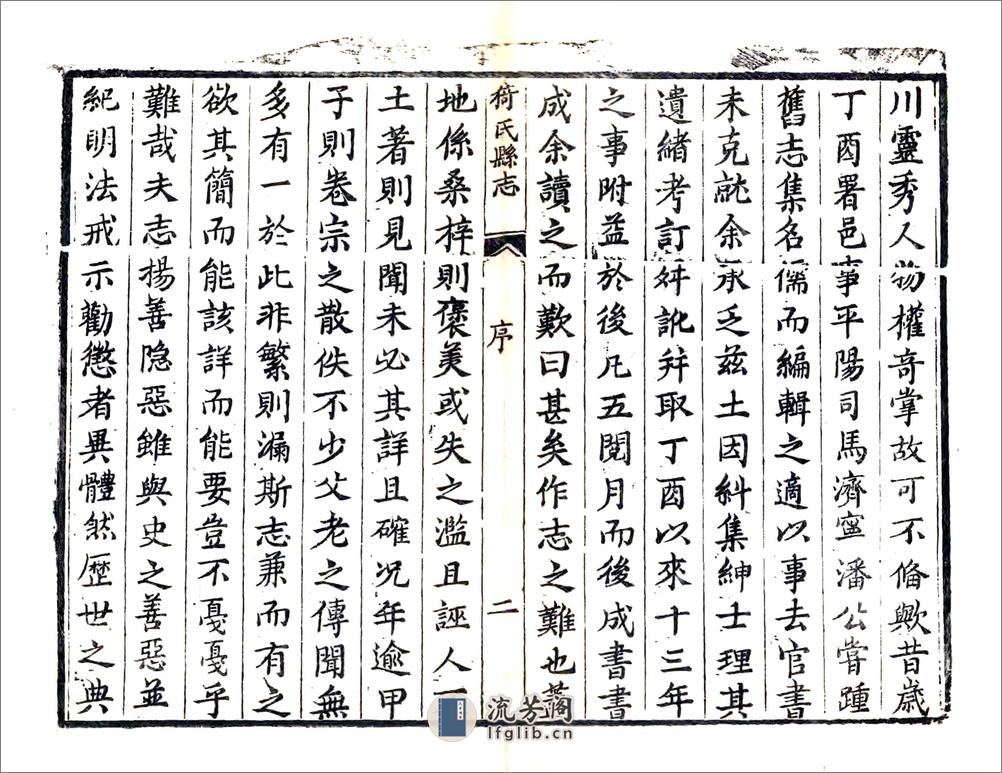 川靈秀人物權奇掌故可不備歟昔歲
丁酉署邑事平陽司馬濟寧潘公嘗踵
舊志集名儒而編輯之適以事去官書
未克就余承乏茲土因糾集紳士理其
遺緒考訂舛訛并取丁酉以來十三年
之事附益於後凡五閱月而後成書書
成余讀之而歎曰甚矣作志之難也
猗氏縣志
序
二
地係桑梓則褒美或失之濫且誣人
土著則見聞未必其詳且確况年逾甲
子則卷宗之散佚不少父老之傳聞無
多有一於此非繁則漏斯志兼而有之
欲其簡而能該詳而能要豈不戛戛乎
難哉夫志揚善隐惡雖與史之善惡並
紀明法戒示勸懲者異體然歷世之典
流芳閣
lfglib.cn